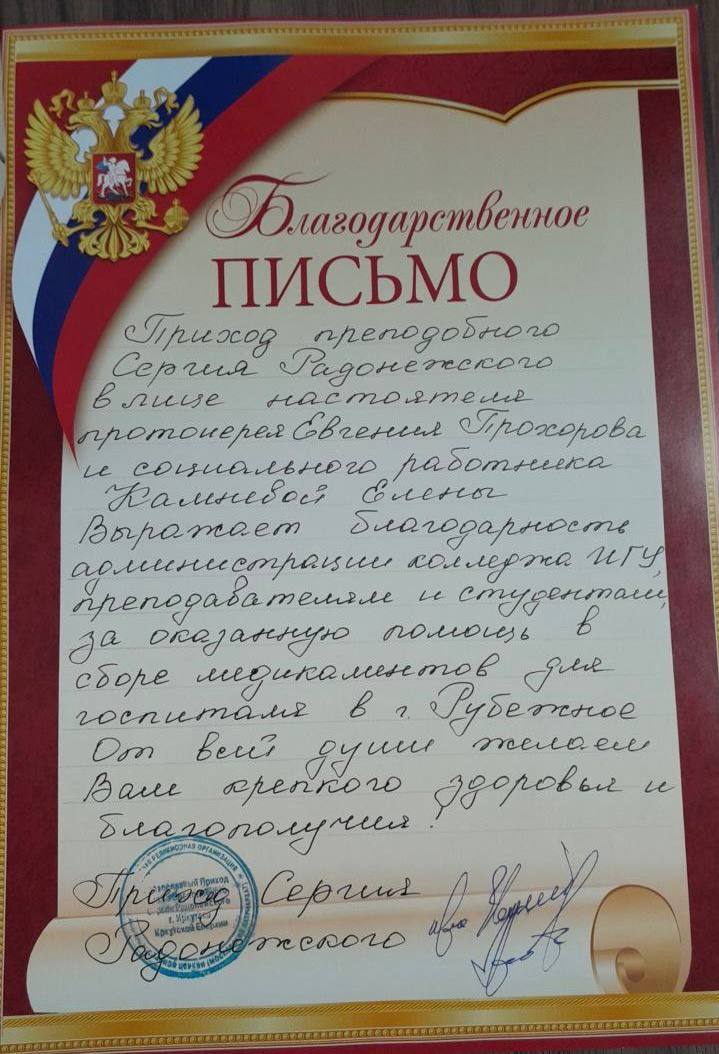 Благодарственное
ПИСЬМО
Приход преподобного
Сергия Радонежского
в лице настоятеля
протоиерея Евгения Прохорова
и социального работника
Камневой Елены
Выражает благодарность
администрации колледжа ИГУ,
преподавателям и студентам,
за оказанную помощь в
сборе медикаментов для
госпиталя в г. Рубежное
От всей души желаем
Вам крепкого здоровья и
благополучия!
Приход Сергия
Радонежского
РЕЛИГИОЗНАЯ ОРГАНИЗАЦИЯ
Приход
г. Иркутска
Иркутской Епархии